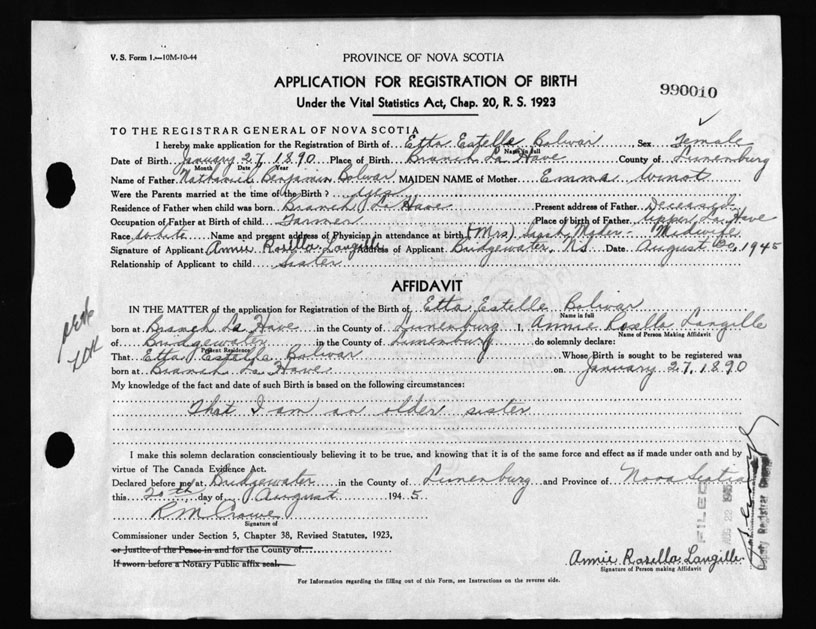 V. S. Form 1.—10M-10-44
PROVINCE OF NOVA SCOTIA
APPLICATION FOR REGISTRATION OF BIRTH
990010
Under the Vital Statistics Act, Chap. 20, R. S. 1923
TO THE REGISTRAR GENERAL OF NOVA SCOTIA
I hereby make application for the Registration of Birth of Etta Estella Bolivar Sex Female
Name in full
Date of Birth January 27, 1890 Place of Birth Branch La Have County of Lunenburg
Month Date Year
Name of Father Nathaniel Benjamin Bolivar MAIDEN NAME of Mother Emma
Were the Parents married at time of the Birth?
Residence of Father when child was born Branch La Have Present address of Father Deceased
Occupation of Father at Birth of child Farmer Place of birth of Father Upper La Have
Race white Name and present address of Physician in attendance at birth (Mrs) Midwife
Signature of Applicant Annie Rosella Langille Address of Applicant Bridgewater, NS Date August 20, 1945
Relationship of Applicant to child Sister
AFFIDAVIT
IN THE MATTER of the application for Registration of the Birth of Etta Estelle Bolivar
Name in full
born at Branch La Have in the County of Lunenburg I, Annie Rosella Langille
Name of Person Making Affidavit
of Bridgewater in the County of Lunenburg do solemnly declare:
Present Residence
That Etta Estelle Bolivar Whose Birth is sought to be registered was
born at Branch La Have on January 27, 1890
My knowledge of the fact and date of such Birth is based on the following circumstances:
That I am an older sister
I make this solemn declaration conscientiously believing it to be true, and knowing that it is of the same force and effect as if made under oath and by
virtue of The Canada Evidence Act.
Declared before me at Bridgewater in the County of Lunenburg and Province of Nova Scotia
this 20th day of August 1945.
R M Crowe
Signature of
Commissioner under Section 5, Chapter 38, Revised Statutes, 1923,
or Justice of the Peace in and for the County of
If sworn before a Notary Public affix seal.
Annie Rosella Langille
Signature of Person making Affidavit
For Information regarding the filling out of this Form, see Instructions on the reverse side.
FILED
Deputy Registrar General